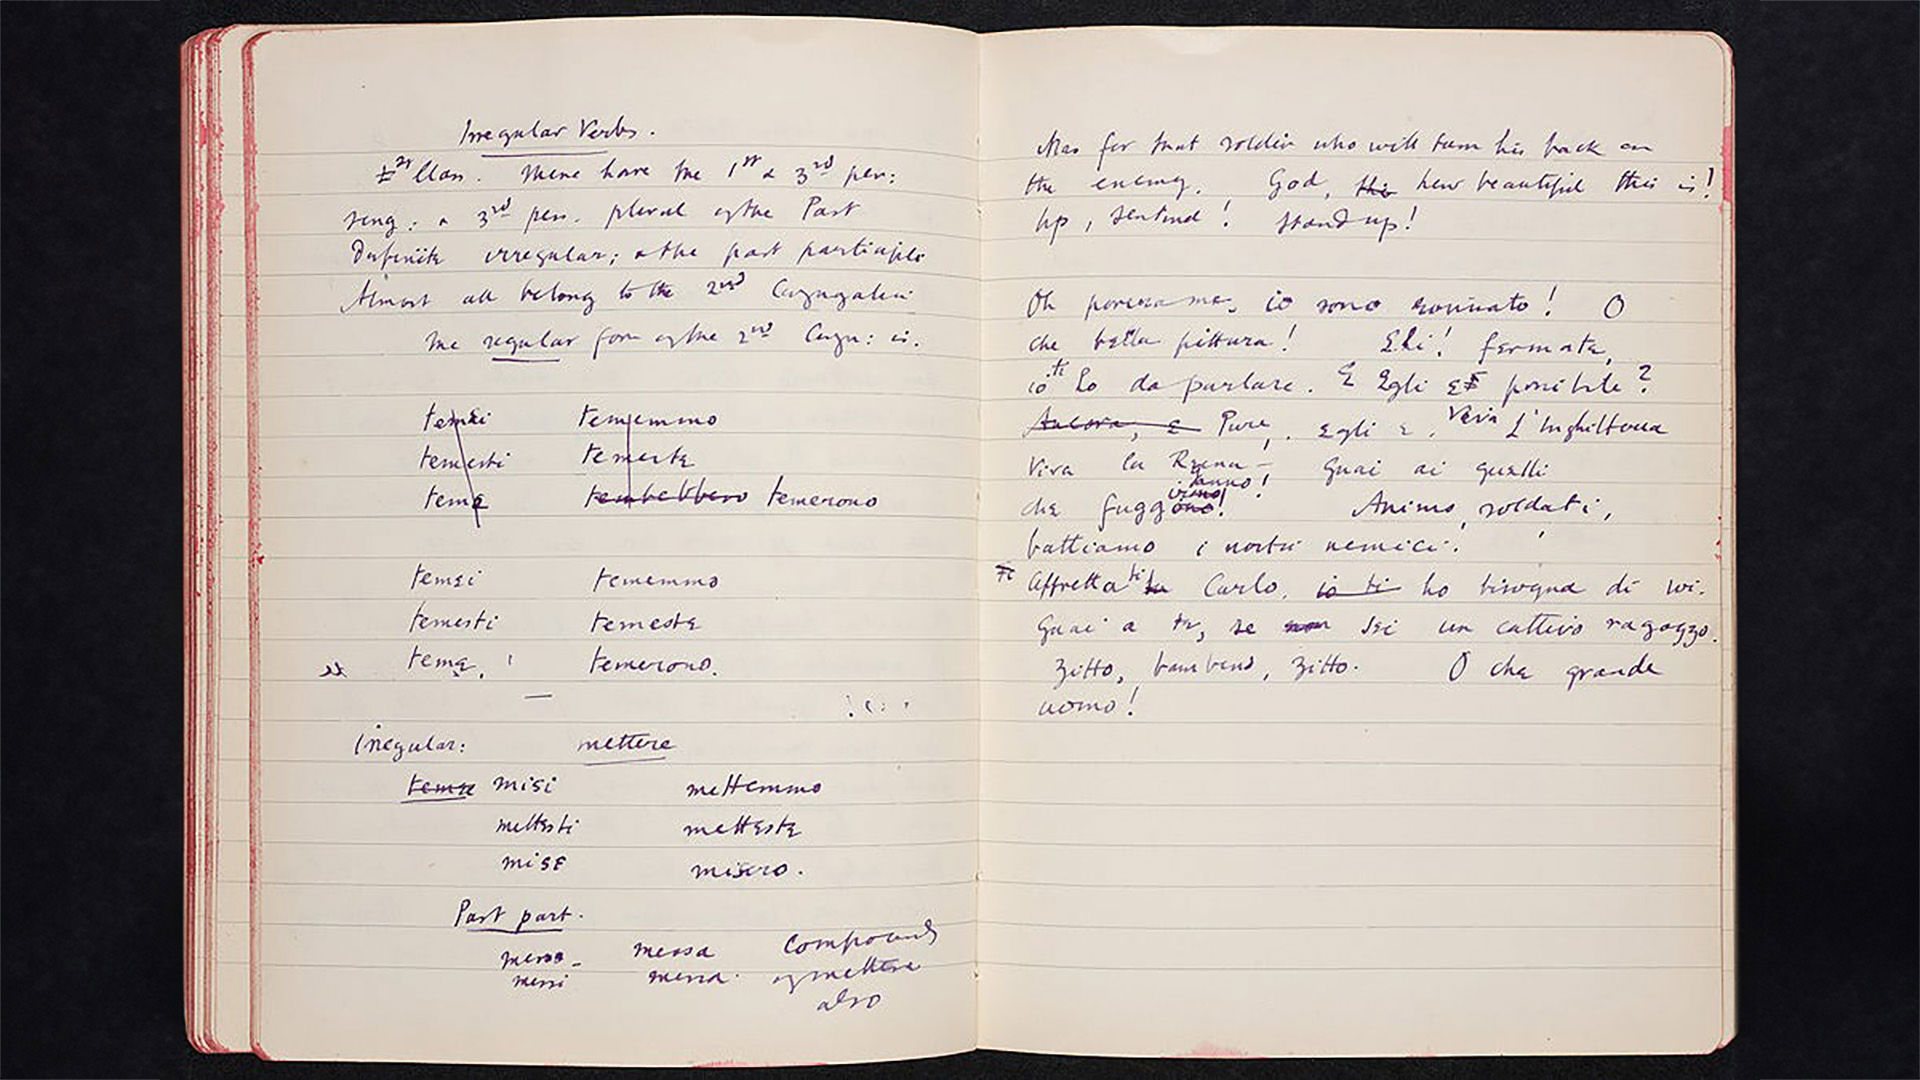 Irregular Verbs.
1st Class. These have the 1st & 3rd per:
sing: & 3rd pers. plural of the Past
Definite irregular; & the past participle
Almost all belong to the 2nd Conjugation
The regular form of the 2nd Conju: is.
temei temjemmo
temesti temeste
teme tembebbero temerono
temei tememmo
temesti temeste
teme, temerono.
Irregular: mettere
teme misi mettemmo
mettesti metteste
mise misero.
Past part.
messo - messa Compounds
messi messe. of mettere
also
Alas for that soldier who will turn his back on
the enemy. God, this how beautiful this is!
Up, sentinel! Stand up!
Oh povera me, io sono rovinato! O
che bella pittura! Ehi! fermate,
io ti ho da parlare. E Egli è possibile?
Ancora, e Pure, . Egli e . Viva L'Inghilterra
Viva la Regina - Guai ai quelli
che fuggono! iranno!
Animo, soldati,
battiamo i nostri nemici!
Ti Affretta ti tu Carlo, io ti ho bisogna di voi.
Guai a te, se non sei un cattivo ragazzo.
Zitto, bambino, zitto. O che grande
uomo!